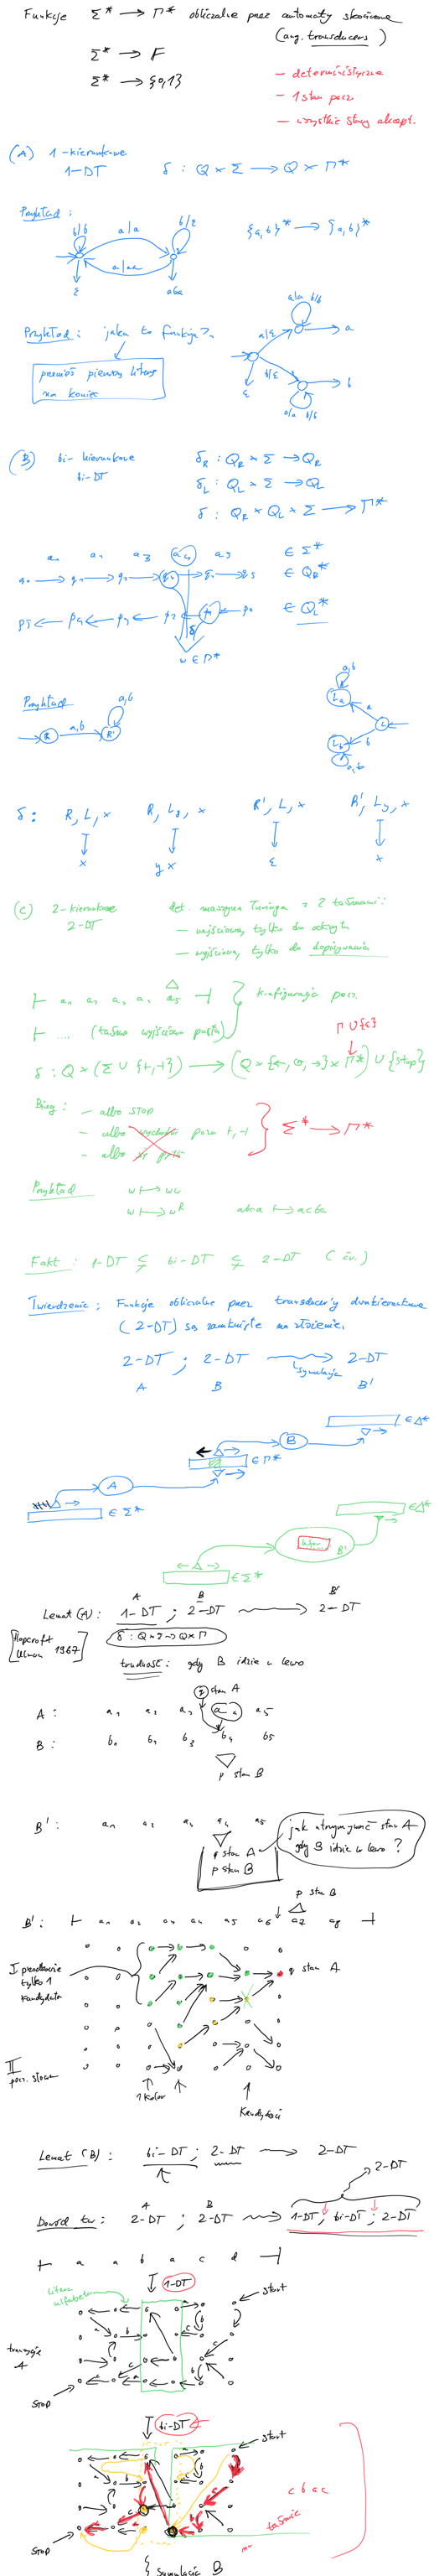 Funkcje Σ* → Γ* obliczalne przez automaty skończone
(ang. transducers)
Σ* → F
Σ* → {0,1}
— deterministyczne
— 1 stan pocz.
— wszystkie stany akcept.
(A) 1-kierunkowe
1-DT δ : Q × Σ → Q × Γ*
Przykład :
b/b a/a b/ε {a,b}* → {a,b}*
a/aa
ε aba
Przykład : jaka to funkcja?
a/a b/b
a/ε a
przenieś pierwszą literę
na koniec
b/ε b
ε
a/a b/b
(B) bi-kierunkowe δ_R : Q_R × Σ → Q_R
bi-DT δ_L : Q_L × Σ → Q_L
δ : Q_R × Q_L × Σ → Γ*
a₁ a₂ a₃ a₄ a₅ ∈ Σ*
q₀ → q₁ → q₂ → q₃ → q₄ → q₅ ∈ Q_R*
p₅ ← p₄ ← p₃ ← p₂ ← p₁ ← p₀ ∈ Q_L*
δ
w ∈ Γ*
Przykład
R a,b R' a,b
a,b L_a a L
b L_b a,b
δ : R, L, x R, L_y, x R', L, x R', L_y, x
x yx ε x
(C) 2-kierunkowe det. maszyna Turinga z 2 taśmami:
2-DT — wejściową tylko do odczytu
— wyjściową tylko do dopisywania
⊢ a₁ a₂ a₃ a₄ a₅ ⊣ } konfiguracja pocz.
⊢ .... (taśma wyjściowa pusta)
Γ ∪ {ε}
δ : Q × (Σ ∪ {⊢,⊣}) → (Q × {←, ↻, →} × Γ*) ∪ {stop}
Bieg : — albo STOP
— albo wychodzi poza ⊢,⊣ } Σ* → Γ*
— albo
Przykład w ↦ ww
w ↦ w^R abca ↦ acba
Fakt : 1-DT ⊊ bi-DT ⊊ 2-DT (ćw.)
Twierdzenie : Funkcje obliczalne przez transducery dwukierunkowe
(2-DT) są zamknięte na złożenie.
2-DT ; 2-DT → 2-DT
symulacja
A B B'
∈ Δ*
B
∈ Γ*
A
∈ Σ*
∈ Δ*
B'
∈ Σ*
A B B'
Lemat (A) : 1-DT ; 2-DT → 2-DT
[Hopcroft Ullman 1967] δ : Q × Σ → Q × Γ
trudność : gdy B idzie w lewo
q stan A
A : a₁ a₂ a₃ a₄ a₅
B : b₁ b₂ b₃ b₄ b₅
p stan B
B' : a₁ a₂ a₃ a₄ a₅
q stan A
p stan B
jak utrzymywać stan A
gdy B idzie w lewo ?
p stan B
B' : ⊢ a₁ a₂ a₃ a₄ a₅ a₆ a₇ a₈ ⊣
I
tylko 1
kandydat
q stan A
II
pocz. słowa
1 kolor
Kandydaci
Lemat (B) : bi-DT ; 2-DT → 2-DT
2-DT
A B
Dowód tw : 2-DT ; 2-DT → 1-DT ; bi-DT ; 2-DT
⊢ a a b a c d ⊣
litera
alfabetu
1-DT
start
tranzycje
A
STOP
bi-DT
start
c b a c
taśmie
STOP
symulacja B